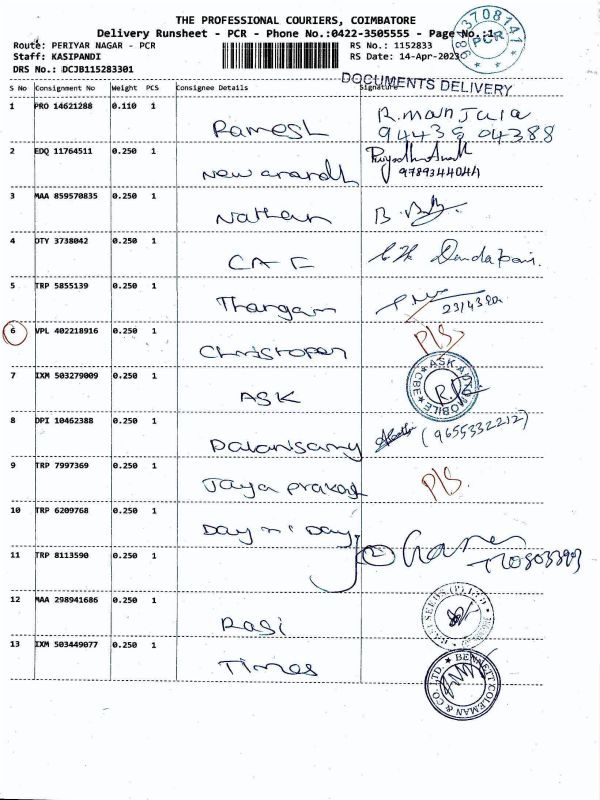 THE PROFESSIONAL COURIERS, COIMBATORE
Delivery Runsheet - PCR - Phone No.:0422-3505555 - Page No.:1
Route: PERIYAR NAGAR - PCR RS No.: 1152833
Staff: KASIPANDI RS Date: 14-Apr-2023
DRS No.: DCJB115283301
9843708141 PCR
DOCUMENTS DELIVERY
S No Consignment No Weight PCS Consignee Details Signature
1 PRO 14621288 0.110 1 Ramesh R.manjula
94435 04388
2 EDQ 11764511 0.250 1 New anandh
9789344044
3 MAA 859570835 0.250 1 Nathan
4 DTY 3738042 0.250 1
5 TRP 5855139 0.250 1 Thangam
6 VPL 402218916 0.250 1 Christopher P/S
7 IXM 503279009 0.250 1 ASK ASK AUTOMOBILE CBE
8 DPI 10462388 0.250 1 Palanisamy (9655332212)
9 TRP 7997369 0.250 1 Jaya prakash P/S.
10 TRP 6209768 0.250 1 Day n' Day
11 TRP 8113590 0.250 1
12 MAA 298941686 0.250 1 Rasi RASI SEEDS (P) LTD
13 IXM 503449077 0.250 1 Times BENNETT COLEMAN & CO LTD.